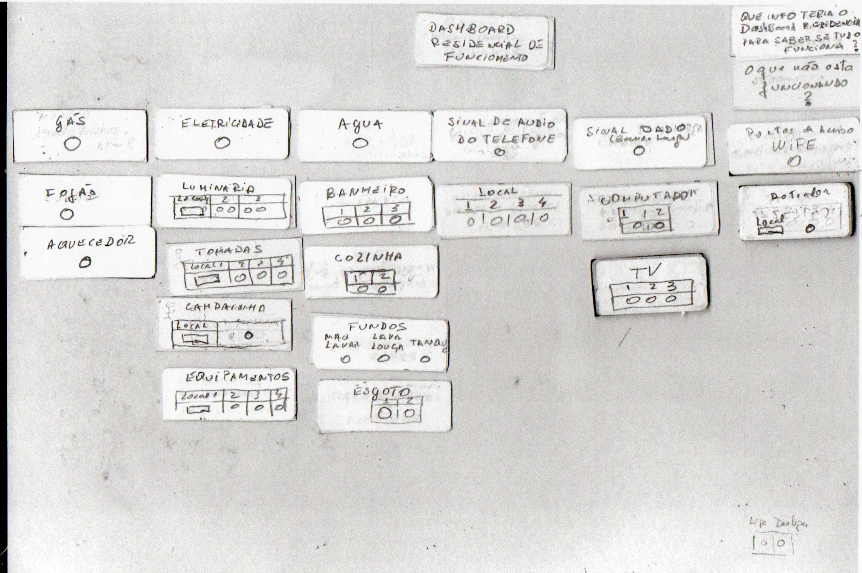 DASHBOARD
RESIDENCIAL DE
FUNCIOMENTO
QUE INFO TERIA O
DASHBOARD RESIDENCIAL
PARA SABER SE TUDO
FUNCIONA ?
O que não esta
FUNCIONANDO
?
GÁS
ELETRICIDADE
AGUA
SINAL DE AUDIO
DO TELEFONE
SINAL
Pontos de
WIFE
FOGÃO
AQUECEDOR
LUMINARIA
LOCAL 1 2 3
TOMADAS
LOCAL 1 2 3 4
CAMPAINHA
LOCAL
EQUIPAMENTOS
LOCAL 1 2 3 4
BANHEIRO
1 2 3
COZINHA
1 2
FUNDOS
LAVA
LAVAR LOUÇA TANQUE
ESGOTO
1 2
LOCAL
1 2 3 4
COMPUTADOR
1 2
TV
1 2 3
Roteador
Local
Liga Desliga